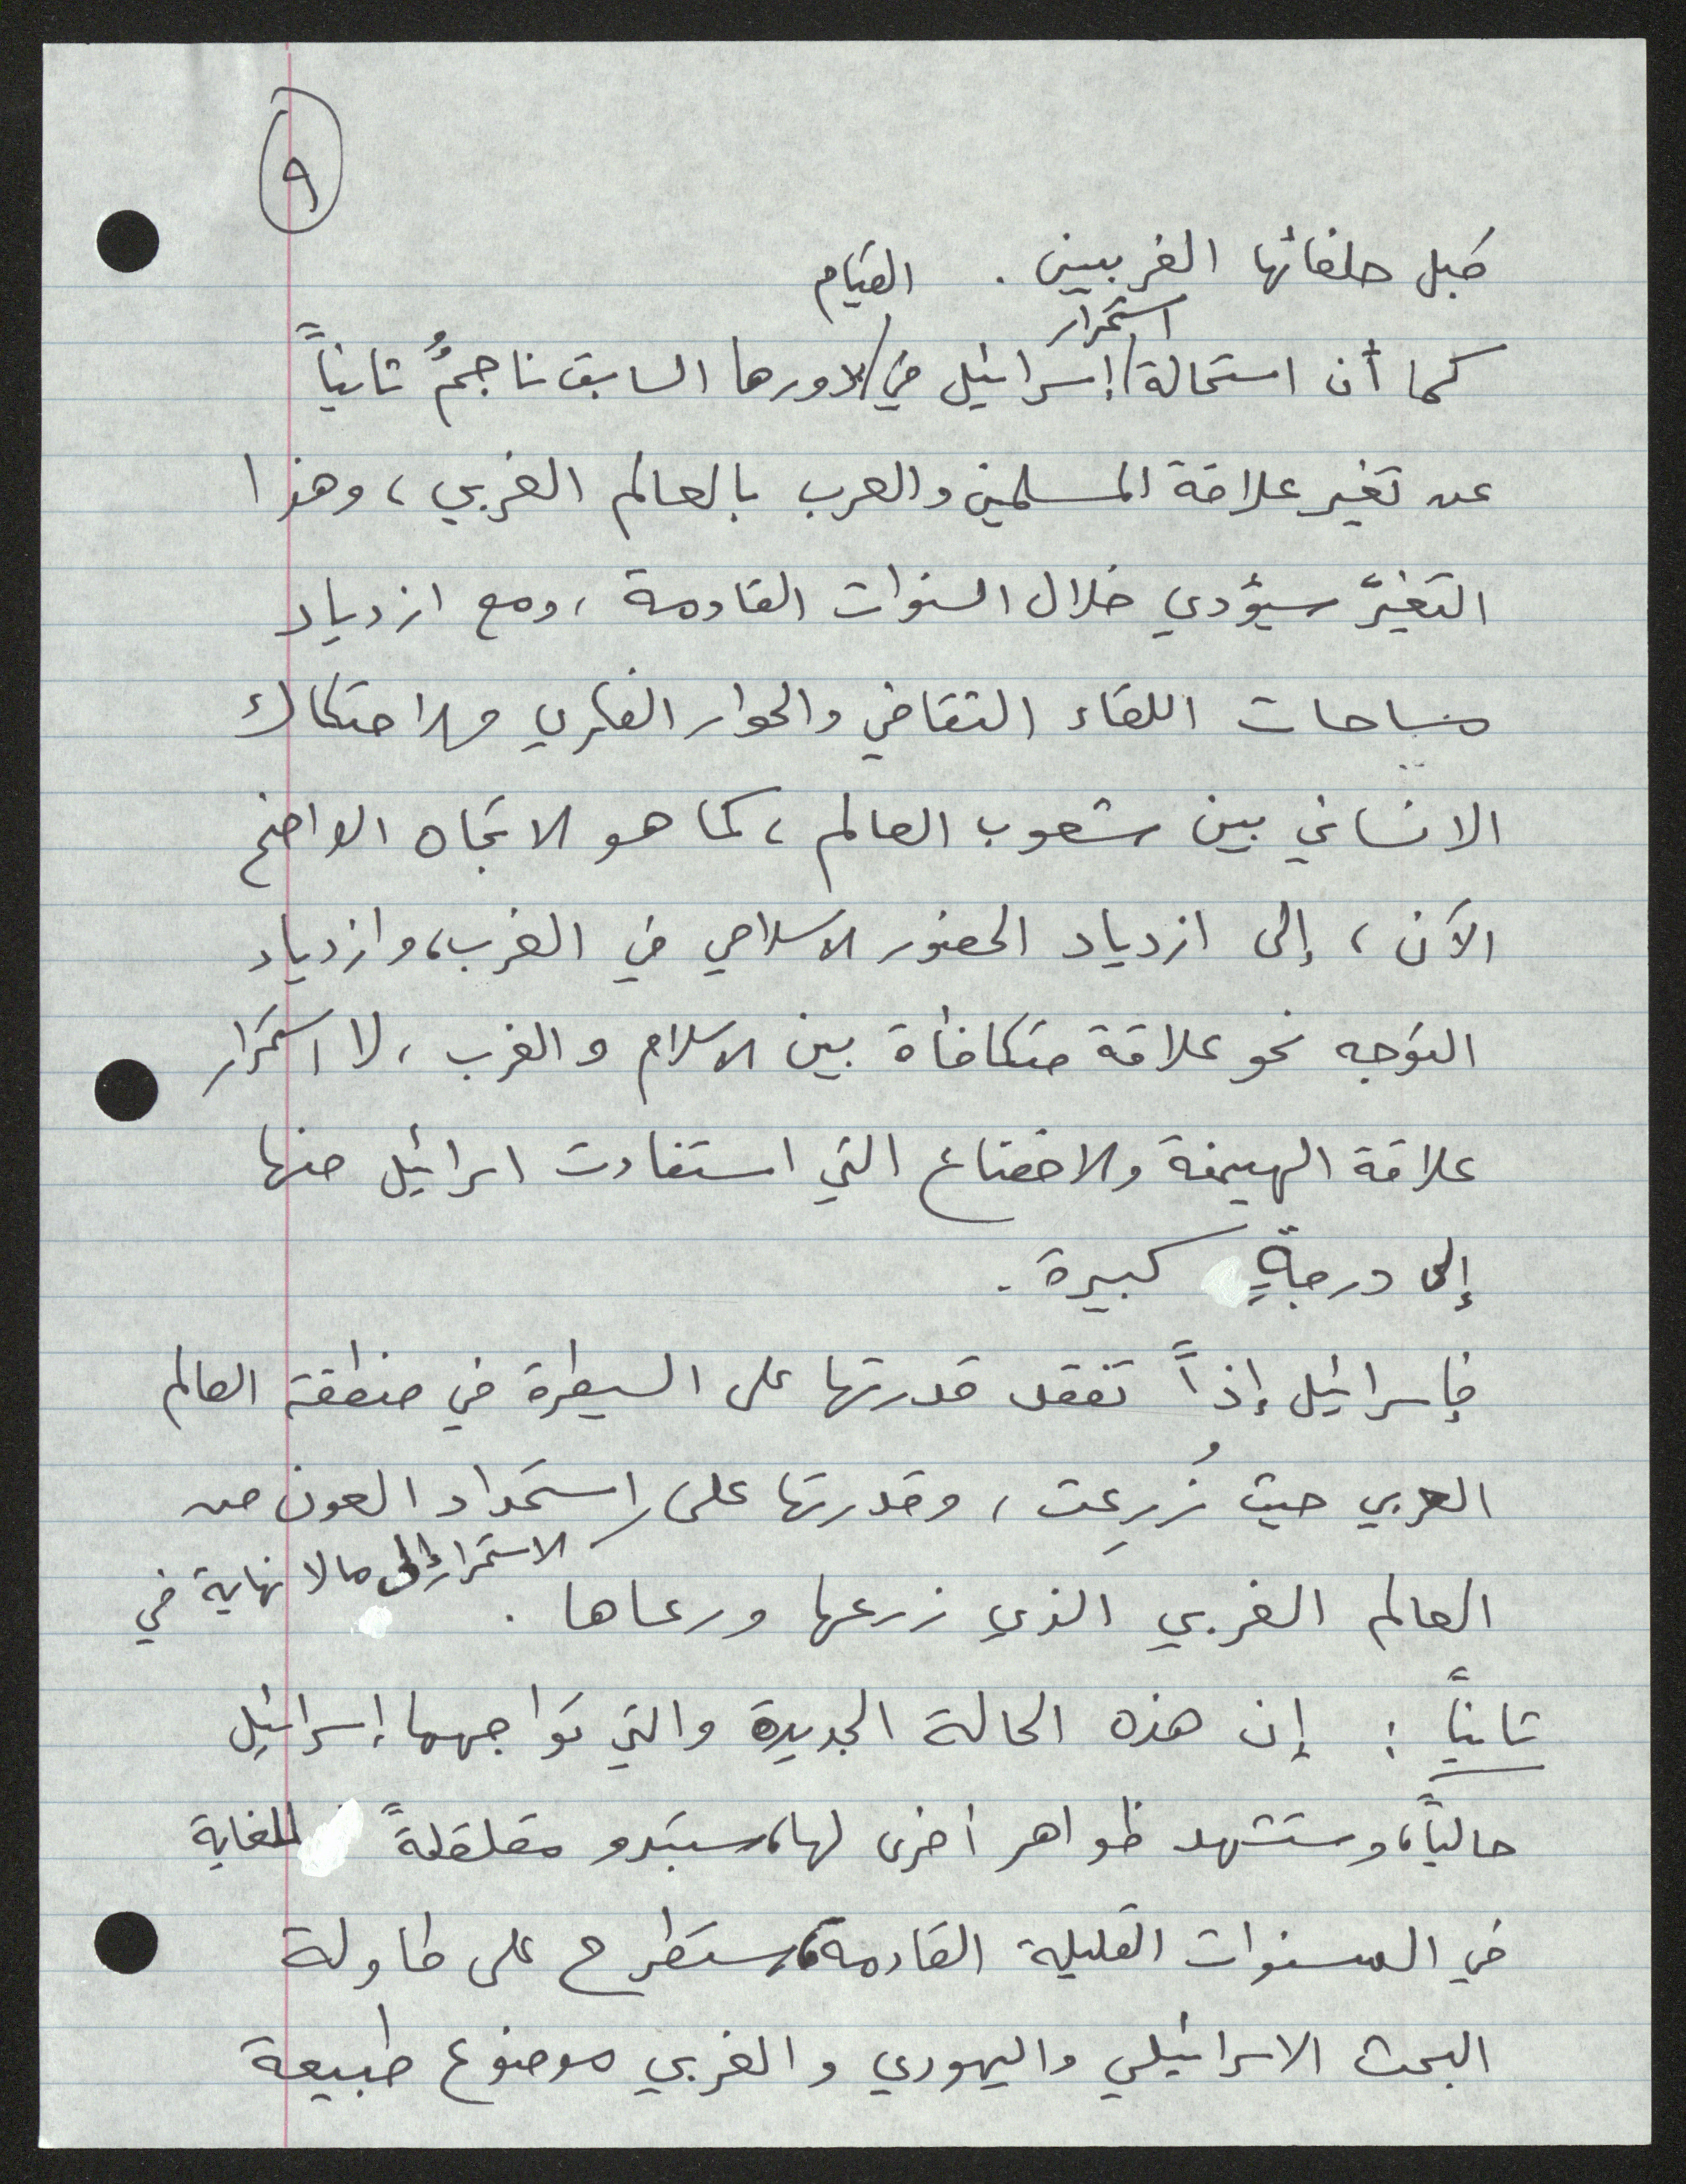 ٩
قبل حلفائها الغربيين . القيام
استمرار
كما أن استحالة / إسرائيل في / لادورها السابق ناجمٌ ثانياً
عن تغير علاقة المسلمين والعرب بالعالم الغربي ، وهذا
التغيّر سيؤدي خلال السنوات القادمة ، ومع ازدياد
مساحات اللقاء الثقافي والحوار الفكري والاحتكاك
الانساني بين شعوب العالم ، كما هو الاتجاه الواضح
الآن ، إلى ازدياد الحضور الاسلامي في الغرب ، وازدياد
التوجه نحو علاقة متكافأة بين الاسلام والغرب ، لا استمرار
علاقة الهيمنة والاخضاع التي استفادت اسرائيل منها
إلى درجةٍ كبيرة .
فإسرائيل إذاً تفقد قدرتها على السيطرة في منطقة العالم
العربي حيث زُرِعت ، وقدرتها على / استمداد العون من
الاستمرار إلى ما لا نهاية في
العالم الغربي الذي زرعها ورعاها .
ثانياً : إن هذه الحالة الجديدة والتي تواجهها إسرائيل
حالياً ، وستشهد ظواهر أخرى لها ، ستبدو مقلقلةً للغاية
في السنوات القليلة القادمة ، ستطرح على طاولة
البحث الاسرائيلي واليهودي والغربي موضوع طبيعة